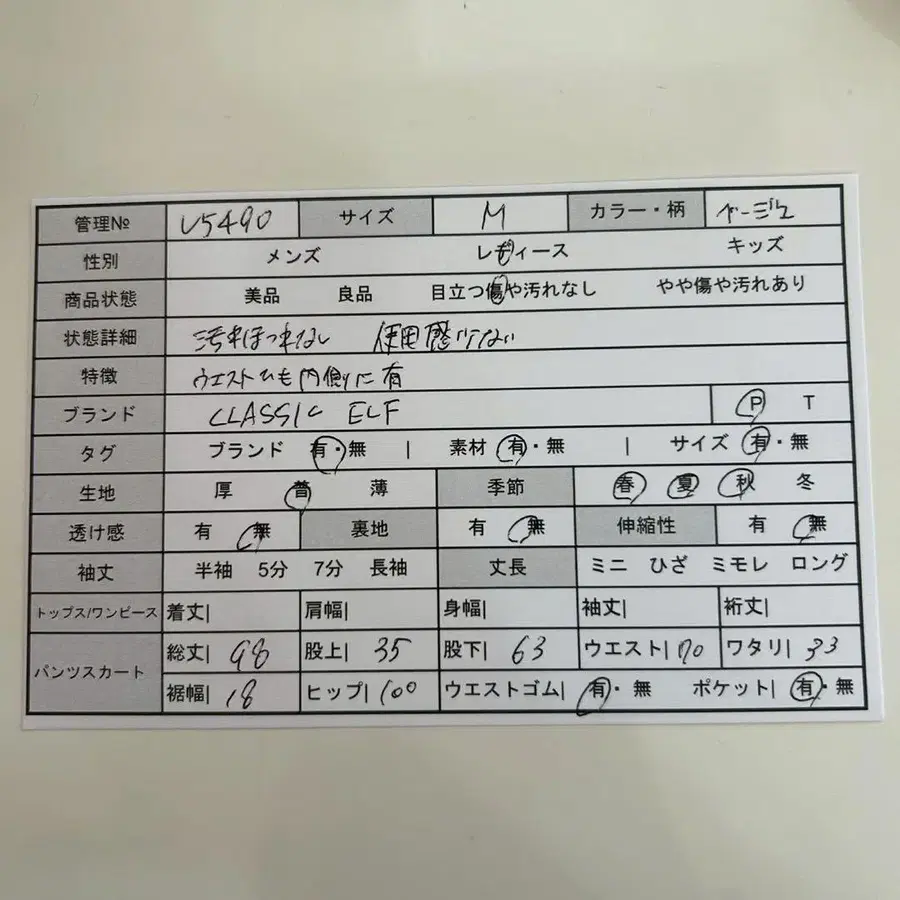 管理№ V5490 サイズ M カラー・柄 ベージュ
性別 メンズ レディース キッズ
商品状態 美品 良品 目立つ傷や汚れなし やや傷や汚れあり
状態詳細 汚れほつれなし 使用感少ない
特徴 ウエストひも内側に有
ブランド CLASSIC ELF P T
タグ ブランド 有・無 | 素材 有・無 | サイズ 有・無
生地 厚 普 薄 季節 春 夏 秋 冬
透け感 有 無 裏地 有 無 伸縮性 有 無
袖丈 半袖 5分 7分 長袖 丈長 ミニ ひざ ミモレ ロング
トップス/ワンピース 着丈| 肩幅| 身幅| 袖丈| 裄丈|
パンツスカート 総丈| 98 股上| 35 股下| 63 ウエスト| 70 ワタリ| 33
裾幅| 18 ヒップ| 100 ウエストゴム| 有・無 ポケット| 有・無